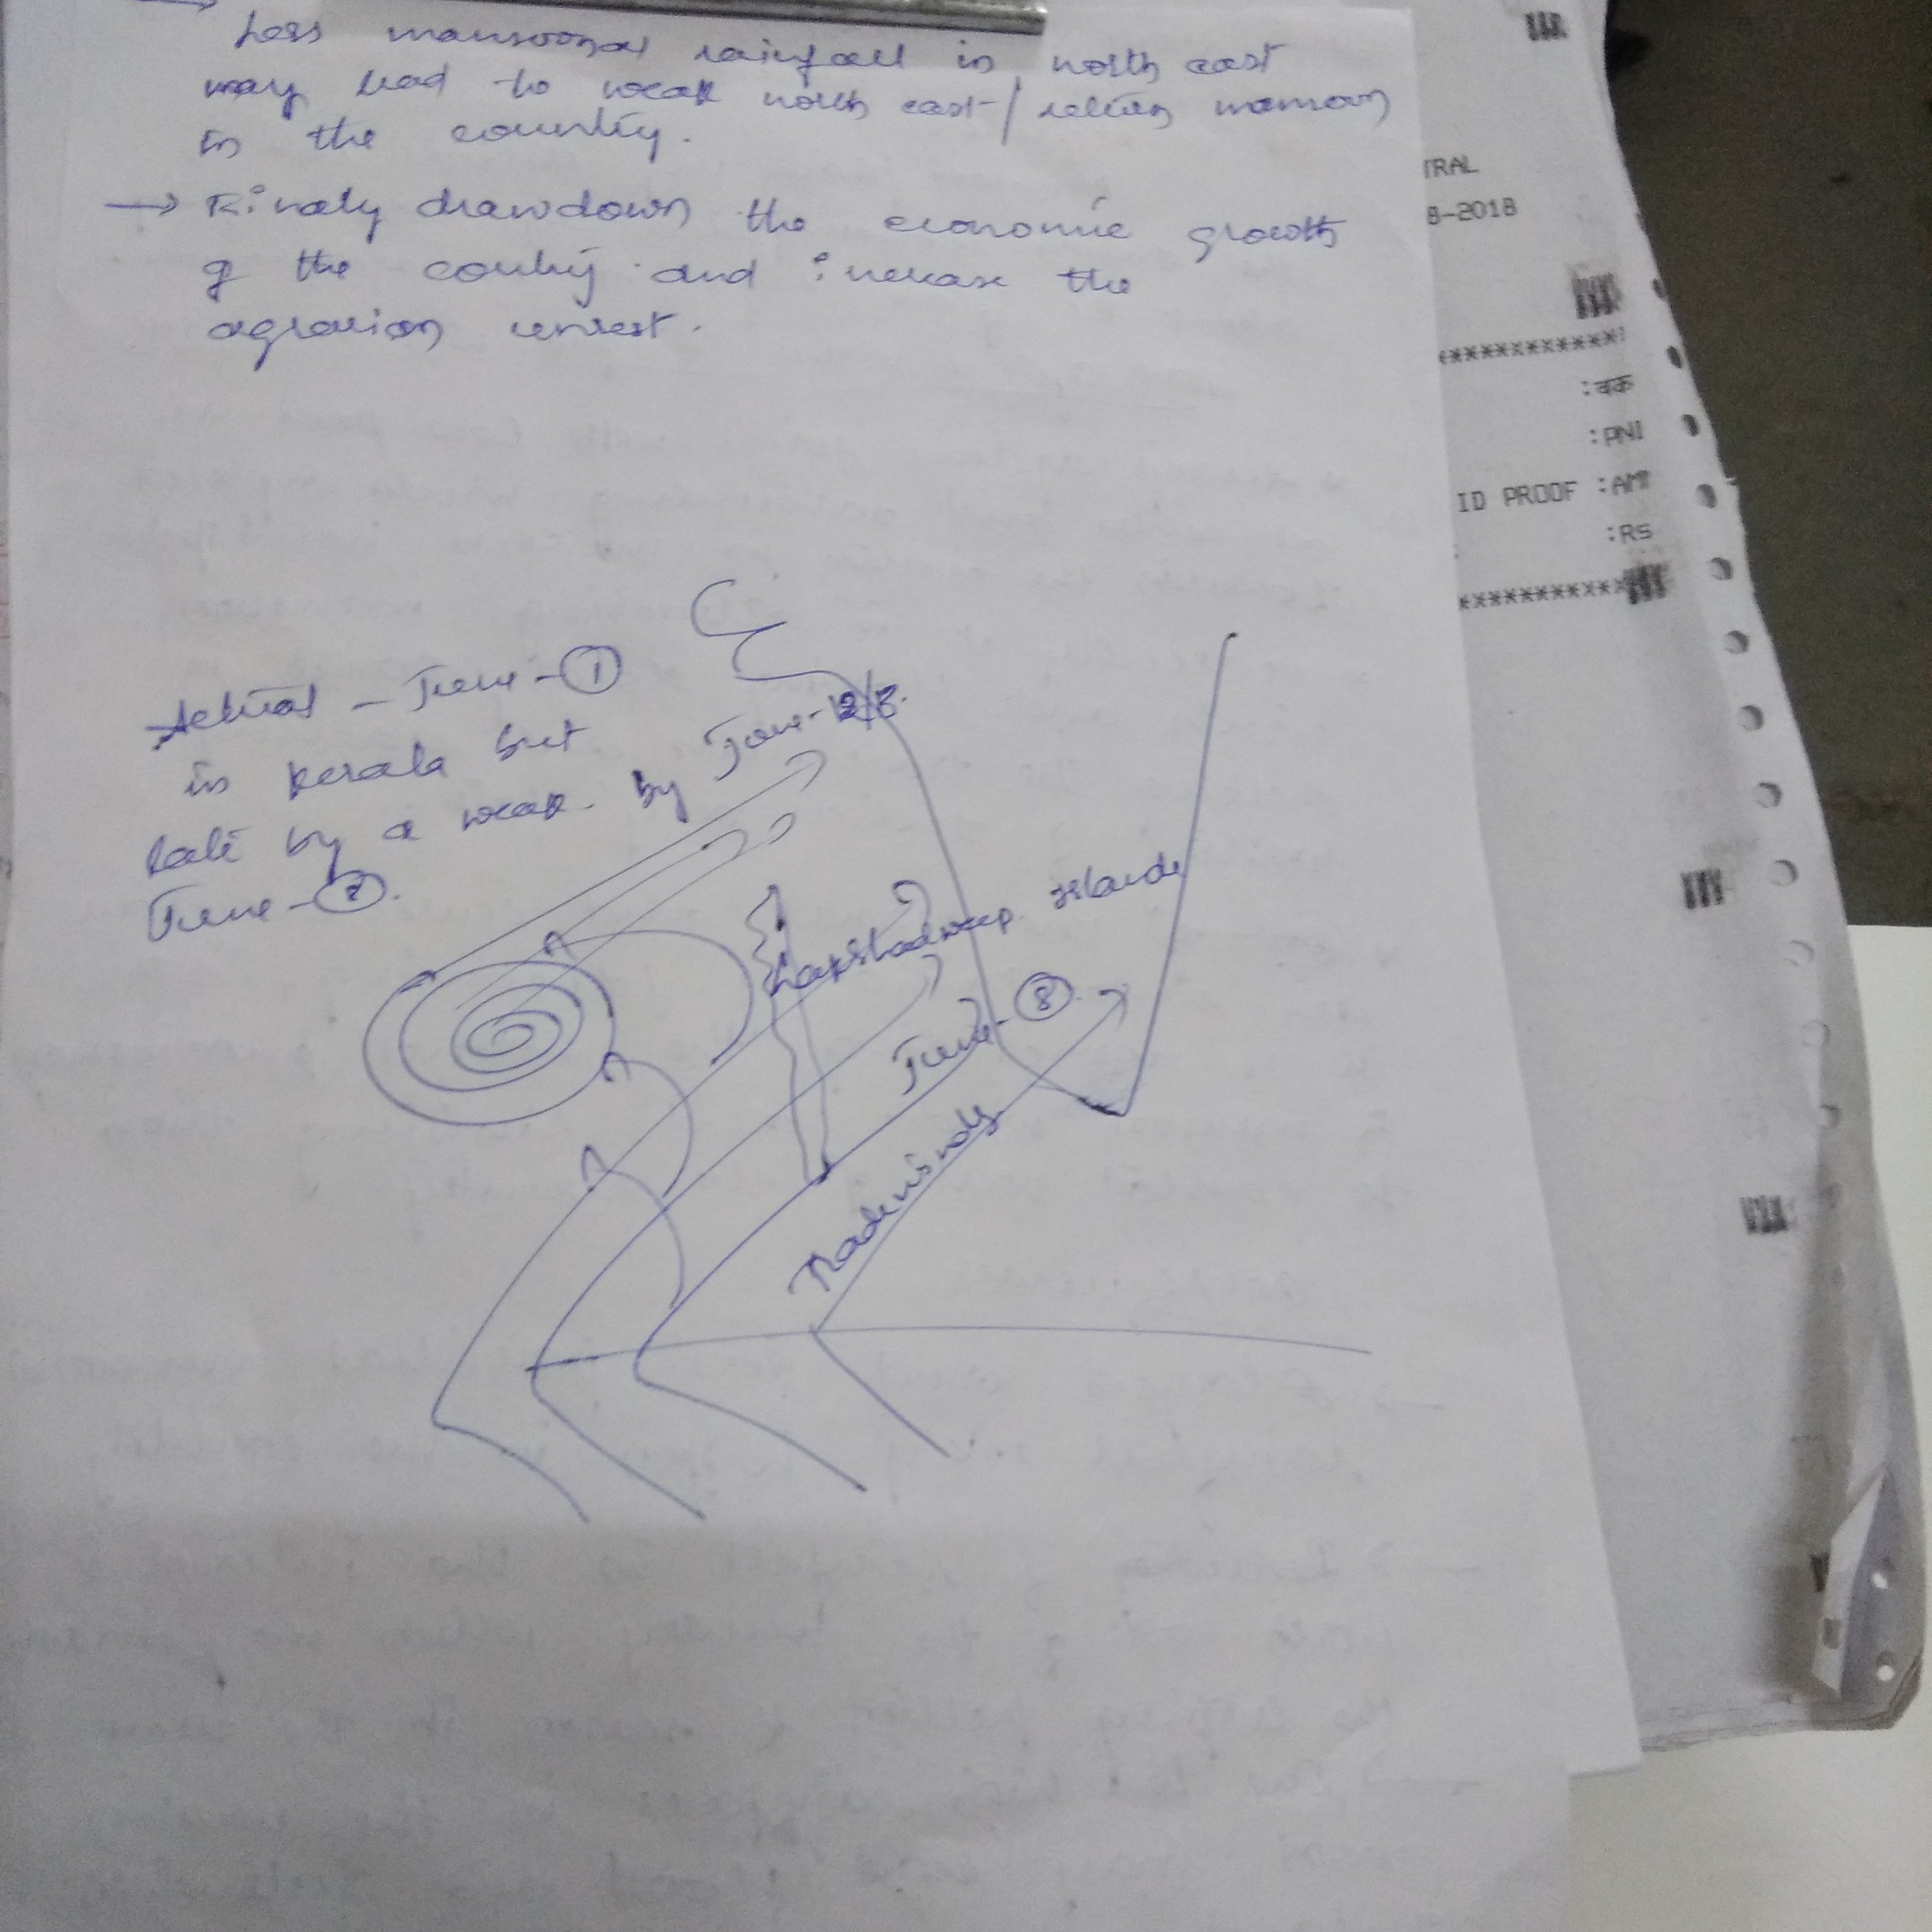 Less mansoonal rainfall in north east
may lead to weak north east/return mansoon
in the country.
→ Finaly drawdown the economic growth
of the country and increase the
agrarian unrest.
Actual - June - 1
in Kerala but
late by a weak. by
June -
June - 12/13.
Lakshadweep Islands
June - 8
Trade winds
TRAL
8-2018
************
:बक
:PNI
ID PROOF :AMT
:RS
************